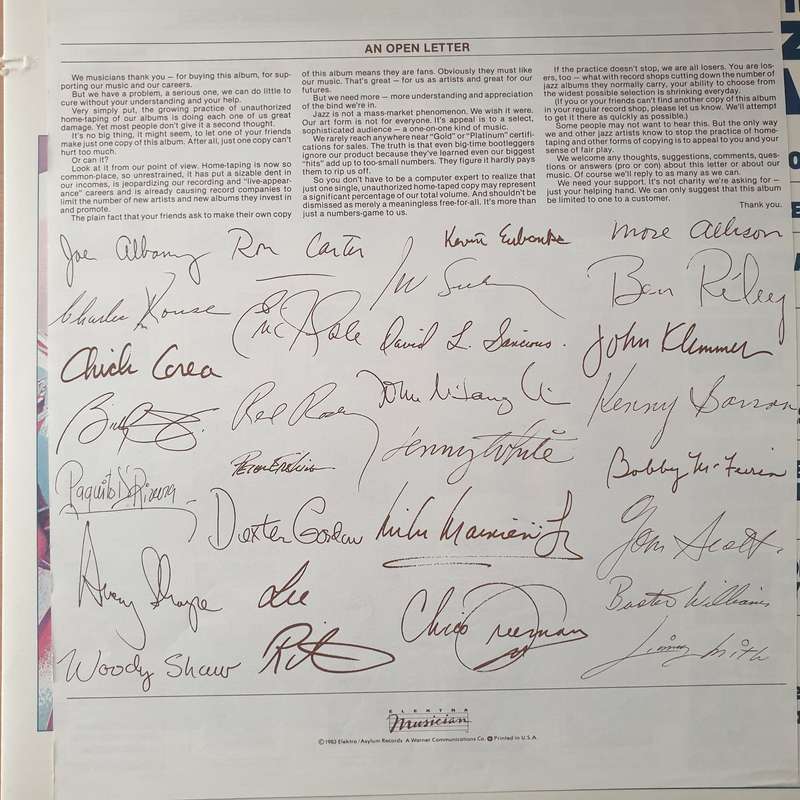 AN OPEN LETTER
We musicians thank you — for buying this album, for sup-
porting our music and our careers.
But we have a problem, a serious one, we can do little to
cure without your understanding and your help.
Very simply put, the growing practice of unauthorized
home-taping of our albums is doing each one of us great
damage. Yet most people don't give it a second thought.
It's no big thing, it might seem, to let one of your friends
make just one copy of this album. After all, just one copy can't
hurt too much.
Or can it?
Look at it from our point of view. Home-taping is now so
common-place, so unrestrained, it has put a sizable dent in
our incomes, is jeopardizing our recording and "live-appear-
ance" careers and is already causing record companies to
limit the number of new artists and new albums they invest in
and promote.
The plain fact that your friends ask to make their own copy
of this album means they are fans. Obviously they must like
our music. That's great — for us as artists and great for our
futures.
But we need more — more understanding and appreciation
of the bind we're in.
Jazz is not a mass-market phenomenon. We wish it were.
Our art form is not for everyone. It's appeal is to a select,
sophisticated audience — a one-on-one kind of music.
We rarely reach anywhere near "Gold" or "Platinum" certifi-
cations for sales. The truth is that even big-time bootleggers
ignore our product because they've learned even our biggest
"hits" add up to too-small numbers. They figure it hardly pays
them to rip us off.
So you don't have to be a computer expert to realize that
just one single, unauthorized home-taped copy may represent
a significant percentage of our total volume. And shouldn't be
dismissed as merely a meaningless free-for-all. It's more than
just a numbers-game to us.
If the practice doesn't stop, we are all losers. You are los-
ers, too — what with record shops cutting down the number of
jazz albums they normally carry, your ability to choose from
the widest possible selection is shrinking everyday.
(If you or your friends can't find another copy of this album
in your regular record shop, please let us know. We'll attempt
to get it there as quickly as possible.)
Some people may not want to hear this. But the only way
we and other jazz artists know to stop the practice of home-
taping and other forms of copying is to appeal to you and your
sense of fair play.
We welcome any thoughts, suggestions, comments, ques-
tions or answers (pro or con) about this letter or about our
music. Of course we'll reply to as many as we can.
We need your support. It's not charity we're asking for —
just your helping hand. We can only suggest that this album
be limited to one to a customer.
Thank you.
Joe Albany Ron Carter Kevin Eubanks Mose Allison
Charles Rouse Ben Riley
David L. Sancious. John Klemmer
Chick Corea
Red Rodney Kenny Barron
Lenny White
Paquito D'Rivera Peter Erskine Bobby McFerrin
Dexter Gordon Mike Mainieri Jr Tom Scott
Avery Sharpe Lee
Rit Chico Freeman Buster Williams
Woody Shaw Jimmy Smith
ELEKTRA
Musician
©1983 Elektra/Asylum Records A Warner Communications Co. Printed in U.S.A.